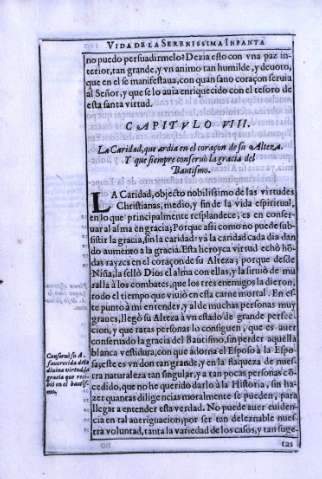 VIDA DE LA SERENISSIMA INFANTA
no puedo persuadirmelo! Dezia esto con vna paz in-
terior, tan grande, y vn animo tan humilde, y deuoto,
que en el se manifestaua, con quan sano coraçon seruia
al Señor, y que se lo auia enriquecido con el tesoro de
esta santa virtud.
CAPITVLO VIII.
La Caridad, que ardia en el coraçon de su Alteza.
Y que siempre conseruò la gracia del
Bautismo.
LA Caridad, objecto nobilissimo de las virtudes
Christianas, medio, y fin de la vida espiritual,
en lo que principalmente resplandece, es en conser-
uar al alma en gracia; Porque assi como no puede sub-
sistir la gracia, sin la caridad: và la caridad cada dia dan
do aumento a la gracia. Esta heroyca virtud echò hõ-
das rayzes en el coraçon de su Alteza; porque desde
Niña, la sellò Dios el alma con ellas, y la siruiò de mu
ralla à los combates, que los tres enemigos la dieron,
todo el tiempo que viuiò en esta carne mortal. En es-
te punto à mi entender, y al de muchas personas muy
graues, llegò su Alteza à vn estado de grande perfec-
cion, y que raras personas lo consiguen, que es auer
conseruado la gracia del Bautismo, sin perder aquella
blanca vestidura, con que adorna el Esposo à la Espo-
sa, este es vn don tan grande, y en la flaqueza de nues-
tra naturaleza tan singular, y a tan pocas personas cõ-
cedido, que no he querido darlo à la Historia, sin ha-
zer quantas diligencias moralmente se pueden, para
llegar a entender esta verdad. No puede auer euiden-
cia en tal aueriguacion, por ser tan deleznable nues-
tra voluntad, tanta la variedad de los casos, y tan suge-
tas
Conseruò su A
diuina virtud, la
gracia que reci-
biò en el bautis-
mo.